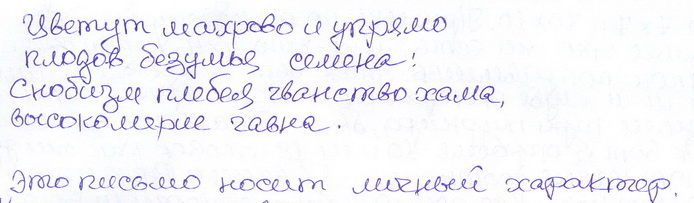 Цветут махрово и упрямо
плодов безумья семена:
Снобизм плебея чванство хама,
высокомерие гавна.
Это письмо носит личный характер.